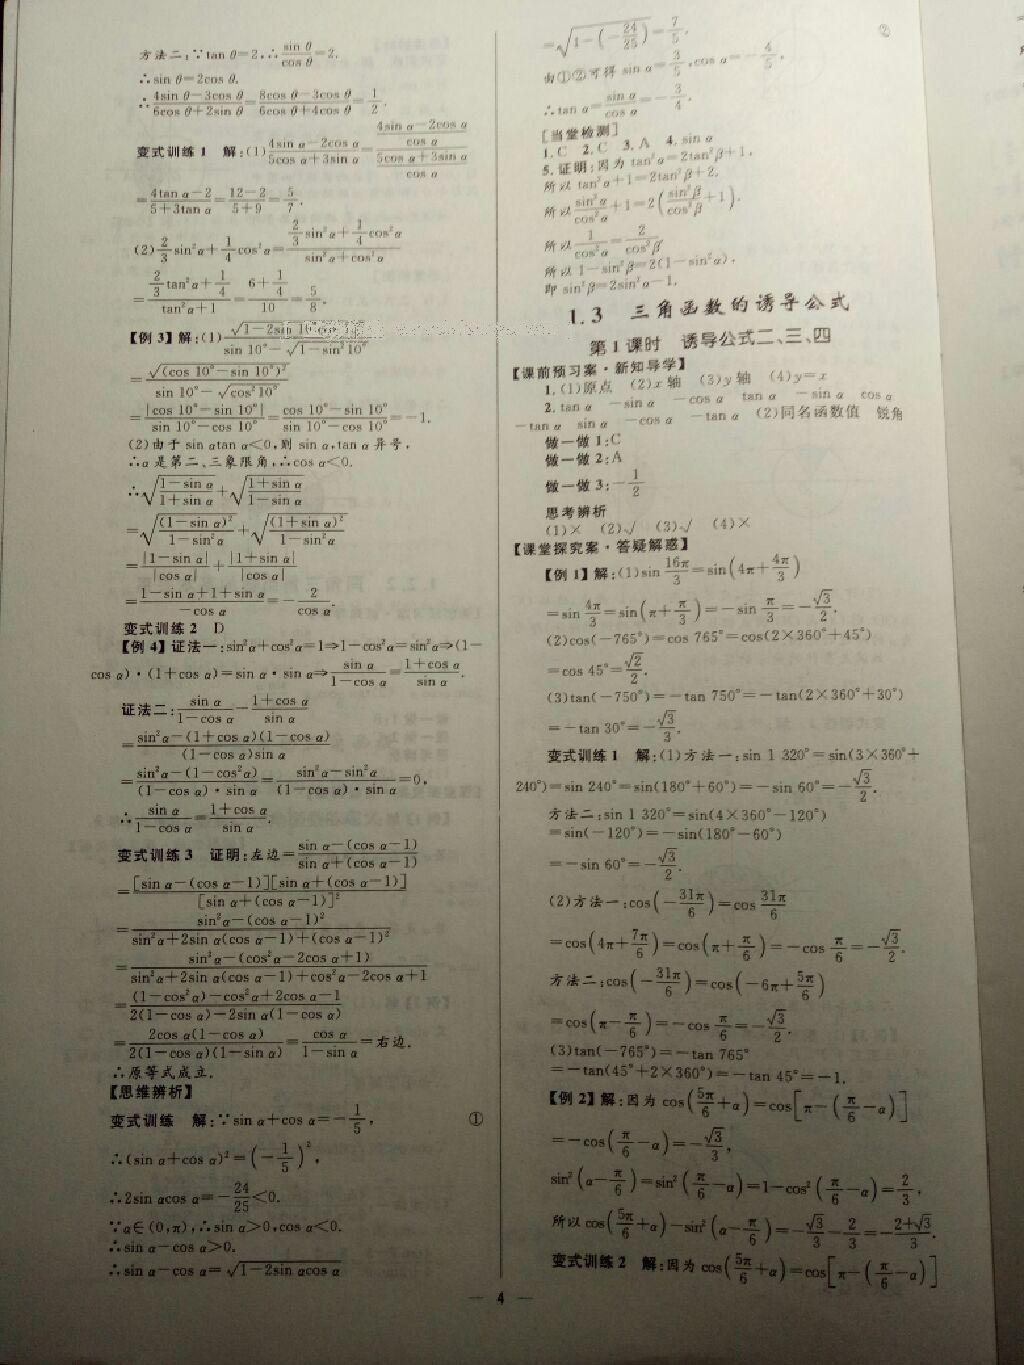 方法二:∵tan θ=2,∴sin θ/cos θ=2.
∴sin θ=2cos θ.
∴(4sin θ-3cos θ)/(6cos θ+2sin θ)=(8cos θ-3cos θ)/(6cos θ+4cos θ)=1/2.
变式训练1 解:(1)(4sin α-2cos α)/(5cos α+3sin α)=((4sin α-2cos α)/cos α)/((5cos α+3sin α)/cos α)
=(4tan α-2)/(5+3tan α)=(12-2)/(5+9)=5/7.
(2)2/3 sin²α+1/4 cos²α=(2/3 sin²α+1/4 cos²α)/(sin²α+cos²α)
=(2/3 tan²α+1/4)/(tan²α+1)=(6+1/4)/10=5/8.
【例3】解:(1)√(1-2sin 10°cos 10°)/(sin 10°-√(1-sin²10°))
=√((cos 10°-sin 10°)²)/(sin 10°-√(cos²10°))
=|cos 10°-sin 10°|/(sin 10°-cos 10°)=(cos 10°-sin 10°)/(sin 10°-cos 10°)=-1.
(2)由于 sin αtan α<0,则 sin α,tan α异号,
∴α是第二、三象限角,∴cos α<0.
∴√((1-sin α)/(1+sin α))+√((1+sin α)/(1-sin α))
=√((1-sin α)²/(1-sin²α))+√((1+sin α)²/(1-sin²α))
=|1-sin α|/|cos α|+|1+sin α|/|cos α|
=(1-sin α+1+sin α)/(-cos α)=-2/cos α.
变式训练2 D
【例4】证法一:sin²α+cos²α=1⇒1-cos²α=sin²α⇒(1-
cos α)·(1+cos α)=sin α·sin α⇒sin α/(1-cos α)=(1+cos α)/sin α.
证法二:sin α/(1-cos α)-(1+cos α)/sin α
=(sin²α-(1+cos α)(1-cos α))/((1-cos α)sin α)
=(sin²α-(1-cos²α))/((1-cos α)·sin α)=(sin²α-sin²α)/((1-cos α)·sin α)=0,
∴sin α/(1-cos α)=(1+cos α)/sin α.
变式训练3 证明:左边=(sin α-(cos α-1))/(sin α+(cos α-1))
=[sin α-(cos α-1)][sin α+(cos α-1)]/[sin α+(cos α-1)]²
=(sin²α-(cos α-1)²)/(sin²α+2sin α(cos α-1)+(cos α-1)²)
=(sin²α-(cos²α-2cos α+1))/(sin²α+2sin α(cos α-1)+cos²α-2cos α+1)
=((1-cos²α)-cos²α+2cos α-1)/(2(1-cos α)-2sin α(1-cos α))
=2cos α(1-cos α)/(2(1-cos α)(1-sin α))=cos α/(1-sin α)=右边.
∴原等式成立.
【思维辨析】
变式训练 解:∵sin α+cos α=-1/5, ①
∴(sin α+cos α)²=(-1/5)²,
∴2sin αcos α=-24/25<0.
∵α∈(0,π),∴sin α>0,cos α<0.
∴sin α-cos α>0.
∴sin α-cos α=√(1-2sin αcos α)
=√(1-(-24/25))=7/5, ②
由①②可得 sin α=3/5,cos α=-4/5,
∴tan α=sin α/cos α=-3/4.
【当堂检测】
1.C 2.C 3.A 4.sin α
5.证明:因为 tan²α=2tan²β+1,
所以 tan²α+1=2tan²β+2,
所以 sin²α/cos²α+1=2(sin²β/cos²β+1).
所以 1/cos²α=2/cos²β
所以 1-sin²β=2(1-sin²α),
即 sin²β=2sin²α-1.
1.3 三角函数的诱导公式
第1课时 诱导公式二、三、四
【课前预习案·新知导学】
1.(1)原点 (2)x轴 (3)y轴 (4)y=x
2.tan α -sin α -cos α tan α -sin α cos α
-tan α sin α -cos α -tan α (2)同名函数值 锐角
做一做1:C
做一做2:A
做一做3:-1/2
思考辨析
(1)× (2)√ (3)√ (4)×
【课堂探究案·答疑解惑】
【例1】解:(1)sin 16π/3=sin(4π+4π/3)
=sin 4π/3=sin(π+π/3)=-sin π/3=-√3/2.
(2)cos(-765°)=cos 765°=cos(2×360°+45°)
=cos 45°=√2/2.
(3)tan(-750°)=-tan 750°=-tan(2×360°+30°)
=-tan 30°=-√3/3.
变式训练1 解:(1)方法一:sin 1 320°=sin(3×360°+
240°)=sin 240°=sin(180°+60°)=-sin 60°=-√3/2.
方法二:sin 1 320°=sin(4×360°-120°)
=sin(-120°)=-sin(180°-60°)
=-sin 60°=-√3/2.
(2)方法一:cos(-31π/6)=cos 31π/6
=cos(4π+7π/6)=cos(π+π/6)=-cos π/6=-√3/2.
方法二:cos(-31π/6)=cos(-6π+5π/6)
=cos(π-π/6)=-cos π/6=-√3/2.
(3)tan(-765°)=-tan 765°
=-tan(45°+2×360°)=-tan 45°=-1.
【例2】解:因为 cos(5π/6+α)=cos[π-(π/6-α)]
=-cos(π/6-α)=-√3/3,
sin²(α-π/6)=sin²(π/6-α)=1-cos²(π/6-α)=2/3,
所以 cos(5π/6+α)-sin²(α-π/6)=-√3/3-2/3=-(2+√3)/3.
变式训练2 解:因为 cos(5π/6+α)=cos[π-(π/6-α)]
— 4 —